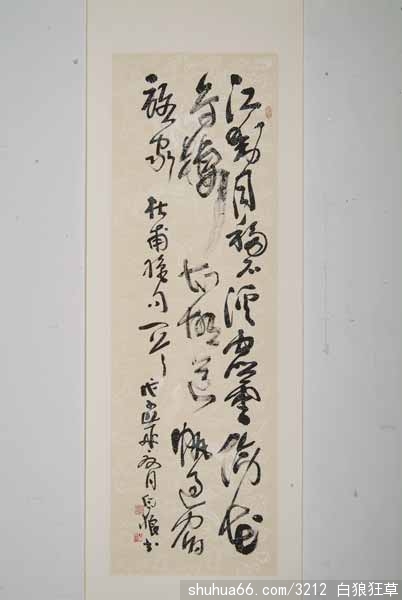 江動月移石溪虚雲傍花
鳥棲知故道帆過宿
誰家
杜甫絶句
戊子
月白狼书
shuhua66.com/3212 白狼狂草